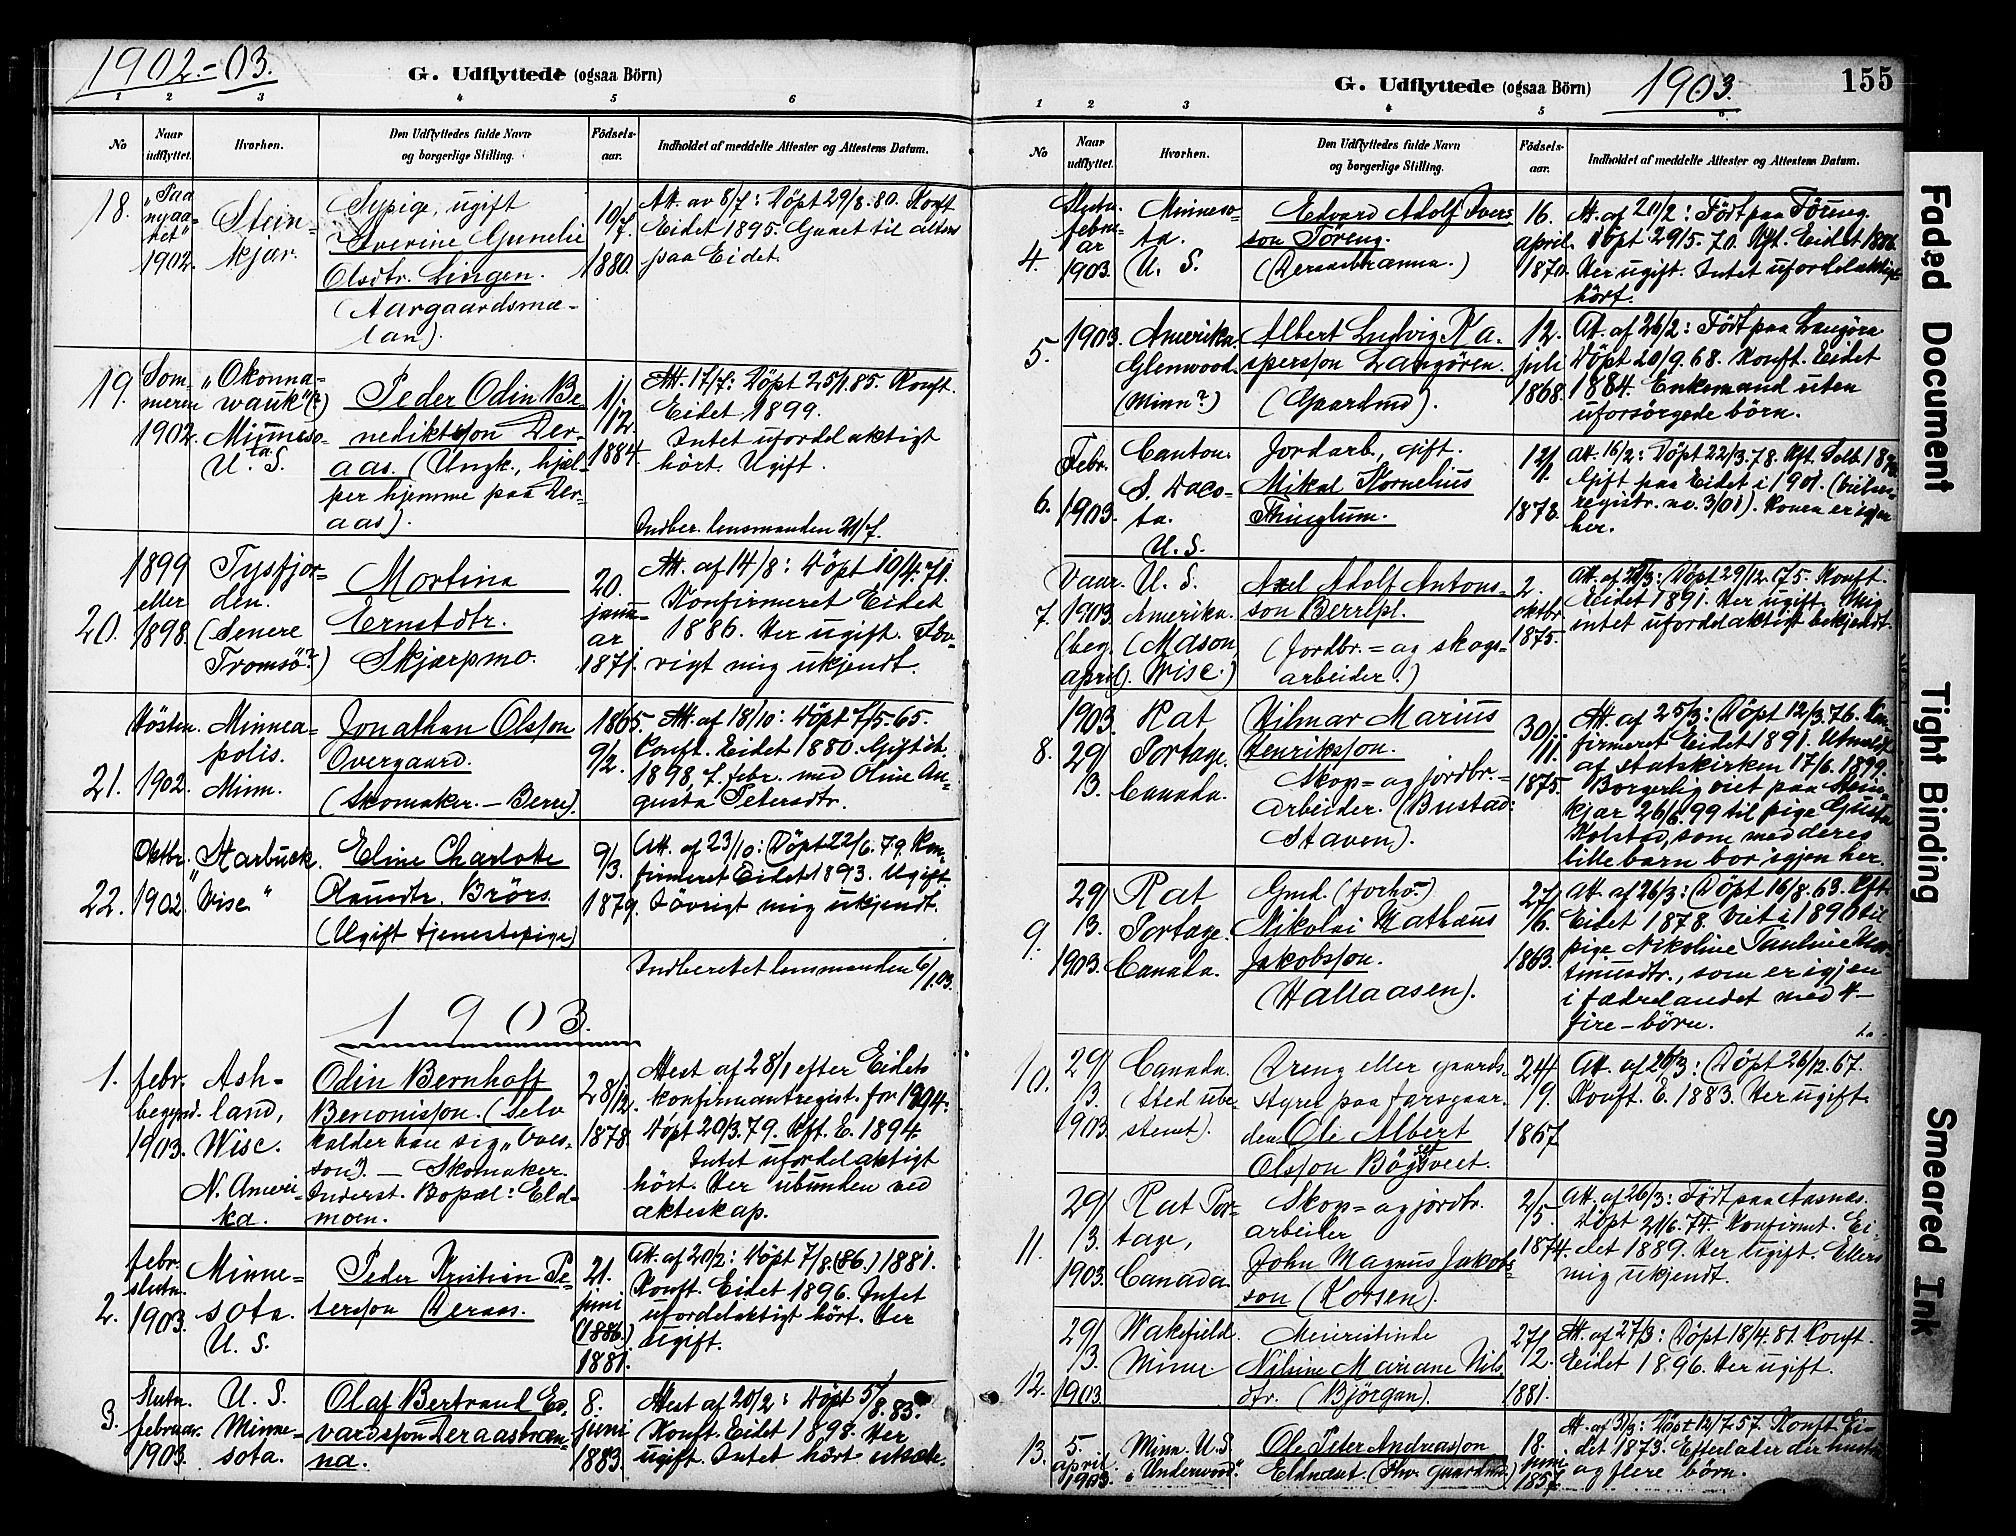 1902.-03.
G. Udflyttede (ogsaa Börn)
1 2 3 4 5 6
No
Naar udflyttet.
Hvorhen.
Den Udflyttedes fulde Navn og borgerlige Stilling.
Födsels-aar.
Indholdet af meddelte Attester og Attestens Datum.
18.
"Paa
nyaa-
ret"
1902.
Stein-
kjær.
Sypige, ugift
Everine Gunelie
Olsdtr. Lingen.
(Aargaardsmæ-
lan).
10/7.
1880.
Att. av 8/7: Döpt 29/8.80. Konft
Eidet 1895. Gaaet til alters
paa Eidet.
19.
Som-
meren
1902.
"Okonna-
wauk" (?)
Minneso-
ta
U. S.
Peder Odin Be-
nediktsson Der-
aas. (Ungk., hjæl-
per hjemme paa Der-
aas).
1/12.
1884.
Att. 17/7: Döpt 25/1.85. Konft.
Eidet 1899.
Intet ufordelaktigt
hört. Ugift.
Indber. lensmanden 21/7.
20.
1899
eller
1898.
Tysfjor-
den.
(Senere
Tromsö?)
Mortina
Ernstdtr.
Skjærpmo.
20.
janu-
ar
1871.
Att. af 14/8: Döpt 10/4.71.
Konfirmeret Eidet
1886. Her ugift. Föv-
rigt mig ukjendt.
21.
Hösten
1902.
Minnea-
polis.
Minn.
Jonathan Olsson
Overgaard.
(Skomaker. - Berre).
1865.
9/2.
Att. af 18/10: Döpt 7/5.65.
Konft. Eidet 1880. Gift it.
1898, 7. febr. med Oline Au-
gusta Petersdtr.
22.
Oktbr.
1902.
"Starbuck.
Wisc."
Eline Charlotte
Olausdtr. Brörs.
(Ugift tjenestepige)
9/3.
1879.
Att. af 23/10: Döpt 22/6.79. Kon-
firmeret Eidet 1893. Ugift.
Iövrigt mig ukjendt.
Indberettet lensmanden 6/1.03.
1903.
1.
febr.
begynd.
1903.
Ash-
land,
Wisc.
N. Ameri-
ka.
Odin Bernhoff
Benonisson. (Selv
kalder han sig "Oves-
son"). - Skomaker.
Inderst. Bopæl: Eld-
moen.
28/12.
1878.
Attest af 28/1 efter Eidets
konfirmantregist. for 1894.
Döpt 20/3.79. Kft. E. 1894.
Intet ufordelaktigt
hört. Her ubunden ved
ækteskap.
2.
febr.
slutn.
1903.
Minne-
sota.
U. S.
Peder Kristian Pe-
tersson Deraas.
21.
juni
(1886.)
1881.
Att. af 20/2: Döpt 7/8.(86.) 1881.
Konft. Eidet 1896. Intet
ufordelaktigt hört. Her
ugift.
3.
Slutn.
februar.
1903.
U. S.
Minne-
sota.
Olaf Bertrand Ed-
vardsson Deraasbræn-
na.
8.
juni
1883.
Attest af 20/2: Döpt 5/8.83.
Konft. Eidet 1898. Her
ugift. Intet hört
G. Udflyttede (ogsaa Börn)
1903.
155
1 2 3 4 5 6
No
Naar udflyttet.
Hvorhen.
Den Udflyttedes fulde Navn og borgerlige Stilling.
Födsels-aar.
Indholdet af meddelte Attester og Attestens Datum.
4.
Slutn.
febru-
ar
1903.
Minneso-
ta.
(U. S.
Edvard Adolf Ivers-
son Töreng.
(Deraasbrænna.)
16.
april
1870.
At. af 20/2: Födt paa Töreng.
Döpt 29/5.70. Kft. Eidet
Her ugift. Intet ufordelaktigt
hört.
5.
1903.
Amerika.
Glenwood.
(Minn?)
Albert Ludvig Ka-
spersson Langören.
(Gaardmd).
12.
juli
1868.
At. af 26/2: Födt paa Langöre
Döpt 20/9.68. Konft. Eidet
1884. Enkemand uten
uforsörgede börn.
6.
Febr.
1903.
Canton.
S. Daco-
ta.
U. S.
Jordarb., gift.
Mikal Kornelius
Thinglum.
12/1.
1878.
At. 16/2: Döpt 22/3.78. Kft. Selb. 1893
Gift paa Eidet i 1901. (Vielses-
registr. no. 3/01). Konen er igjen
her.
7.
Vaar.
1903.
(beg.
april).
U. S.
Amerika.
(Mason,
Wisc.)
Axel Adolf Antons-
son Berrepl.
(Jordbr.= og skogs-
arbeider.)
2.
oktbr.
1875.
At. af 21/3: Döpt 29/12.75. Konft.
Eidet 1891. Her ugift. Mig
intet ufordelaktigt bekjendt.
8.
1903.
29/
3.
Rat
Portage.
Canada.
Hilmar Marius
Henriksson.
Skog= og jordbr.=
arbeider. (Bustad:
Staven).
30/11.
1875.
Att. af 25/3: Döpt 12/3.76. Kon-
firmeret Eidet 1891. Utmeldt
af statskirken 17/6.1899.
Borgerlig viet paa Stein-
kjær 26/6.99 til pige Gusta
Kolstad, som med deres
lille barn bor igjen her.
9.
29/
3.
1903.
Rat
Portage.
Canada.
Gmd. (forhv.)
Nikolai Mathæus
Jakobsson.
(Hallaasen).
27/6.
1863.
At. af 26/3: Döpt 16/8.63. Kft.
Eidet 1878. Viet i 1890 til
pige Nikoline Pauline Mar-
tinusdtr., som er igjen
i fædrelandet med 4-
fire-börn.
10.
29/
3.
1903.
Canada.
(Sted ube-
stemt).
Dreng eller gaards-
styrer paa farsgaar-
den Ole Albert
Olsson Bögset
sveet.
24/
9.
1867
At. af 26/3: Döpt 26/12.67.
Konft. E. 1883. Her ugift.
11.
29/
3.
1903.
Rat Por-
tage,
Canada.
Skog= og jordbr.
arbeider
John Magnus Jakobs-
son (Korsen).
2/5.
1874.
At. af 26/3: Födt paa Aasnæs.
Döpt 21/6.74. Konfirmt. Ei-
det 1889. Her ugift. Ellers
mig ukjendt.
12.
29/
3.
1903.
Wakefield.
Minn.
Meieristinde
Nilsine Mariane Nils-
dtr. (Björgan).
27/
12.
1881.
At. af 27/3: Döpt 18/4.81. Konft.
Eidet 1896. Her ugift.
13.
5.
april
1903.
Minn. U. S.
"Underwood".
Ole Peter Andreasson
Eldnæset. (Fhv. gaardmd.)
18.
juni
1857.
At. af 31/3: Döpt 12/7.57. Konft. Ei-
det 1873. Efterlader der hustru
og flere börn.
Faded Document
Tight Binding
Smeared Ink